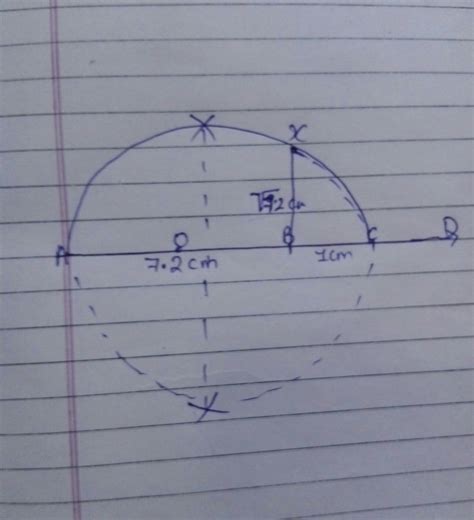 X
√7.2cm
A O B C D
7.2cm 1cm